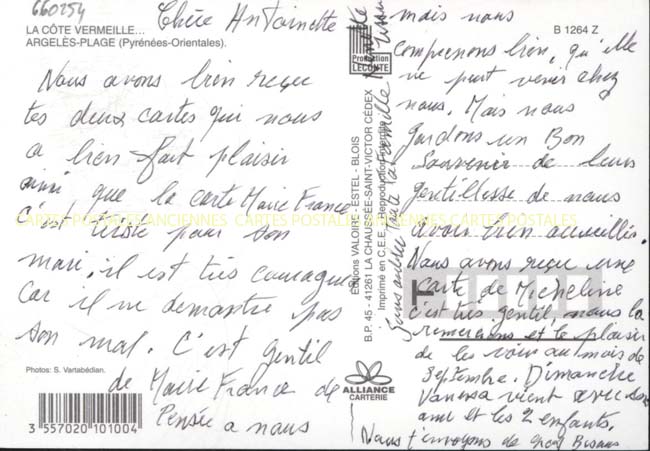 660254
LA CÔTE VERMEILLE...
ARGELÈS-PLAGE (Pyrénées-Orientales).
B 1264 Z
Chère Antoinette
Nous avons bien reçue
tes deux cartes qui nous
a bien fait plaisir
ainsi que la carte Marie France
c'est triste pour son
mari, il est très courageux
car il ne démontre pas
son mal. C'est gentil
de Marie France de
Pensée a nous
mais nous
comprenons bien, qu'elle
ne peut venir chez
nous. Mais nous
gardons un Bon
Souvenir de leurs
gentillesse de nous
avoir bien accueillis.
Nous avons reçue une
carte de Micheline
c'est très gentil, nous la
remercions et le plaisir
de les voir au mois de
Septembre. Dimanche
Vanessa vient avec son
ami et les 2 enfants.
Nous t'envoyons de gros Bisous
Sans oublier toute la famille
Production
LECONTE
Editions VALOIRE - ESTEL - BLOIS
B.P. 45 - 41261 LA CHAUSSÉE-SAINT-VICTOR CÉDEX
Imprimé en C.E.E. - Reproduction interdite
Photos: S. Vartabédian.
3 557020 101004
ALLIANCE
CARTERIE
CARTES POSTALES ANCIENNES CARTES POSTALES ANCIENNES CARTES POSTALES